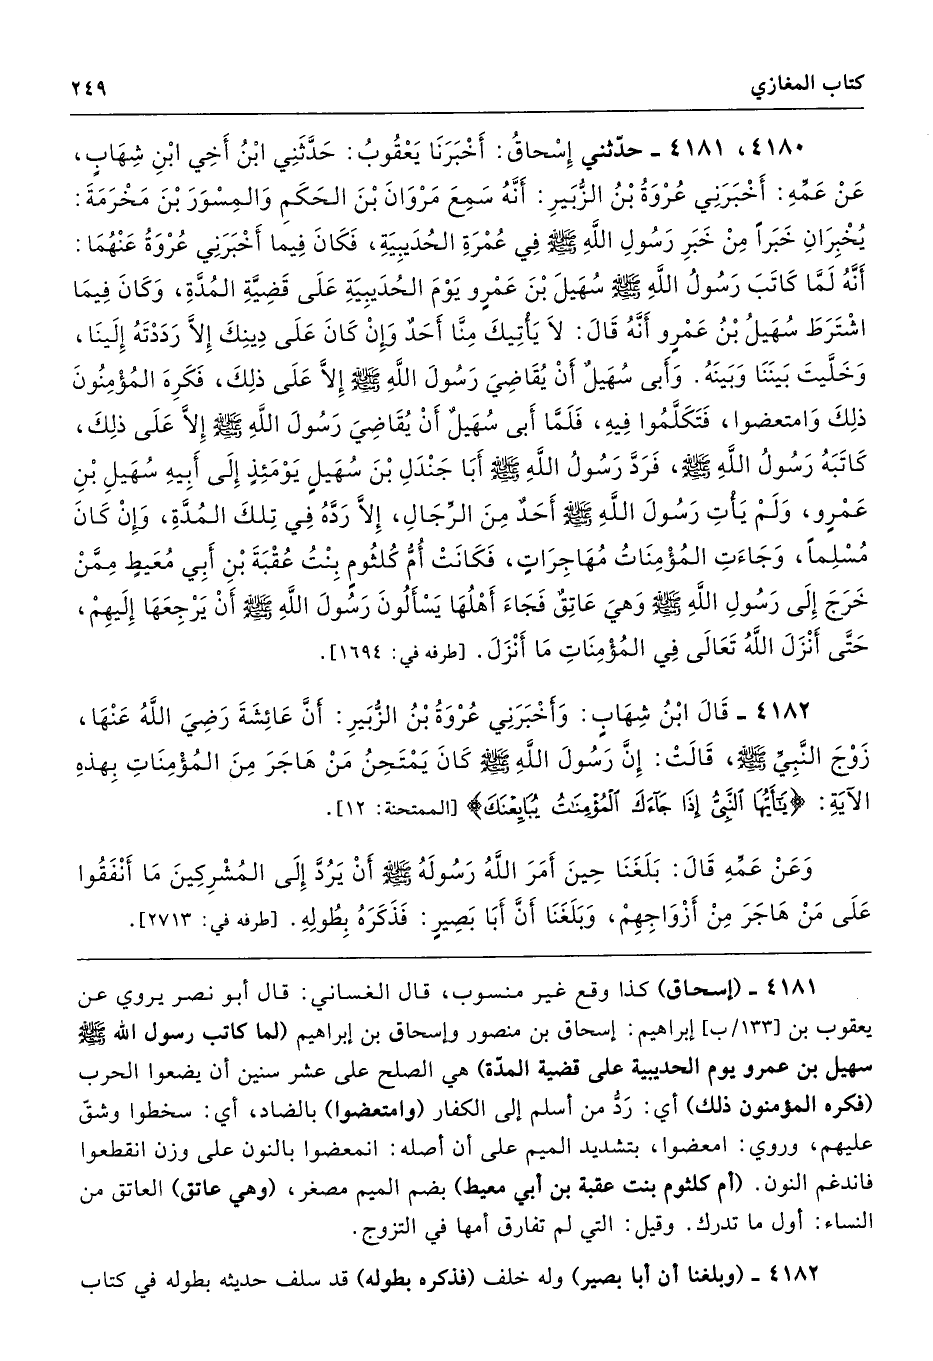 كتاب المغازي ٢٤٩
٤١٨٠، ٤١٨١ ـ حدّثني إِسْحاقُ: أَخْبَرَنَا يَعْقُوبُ: حَدَّثَنِي ابْنُ أَخِي ابْنِ شِهَابٍ،
عَنْ عَمِّهِ: أَخْبَرَنِي عُرْوَةُ بْنُ الزُّبَيرِ: أَنَّهُ سَمِعَ مَرْوَانَ بْنَ الحَكَمِ وَالمِسْوَرَ بْنَ مَخْرَمَةَ:
يُخْبِرَانِ خَبَراً مِنْ خَبَرِ رَسُولِ اللَّهِ ﷺ فِي عُمْرَةِ الحُدَيبِيَةِ، فَكَانَ فِيما أَخْبَرَنِي عُرْوَةُ عَنْهُمَا:
أَنَّهُ لَمَّا كَاتَبَ رَسُولُ اللَّهِ ﷺ سُهَيلَ بْنَ عَمْرٍو يَوْمَ الحُدَيبِيَةِ عَلَى قَضِيَّةِ المُدَّةِ، وَكَانَ فِيمَا
اشْتَرَطَ سُهَيلُ بْنُ عَمْرٍو أَنَّهُ قَالَ: لاَ يَأْتِيكَ مِنَّا أَحَدٌ وَإِنْ كَانَ عَلَى دِينِكَ إِلاَّ رَدَدْتَهُ إِلَينَا،
وَخَلَّيتَ بَينَنَا وَبَينَهُ. وَأَبى سُهَيلٌ أَنْ يُقَاضِيَ رَسُولَ اللَّهِ ﷺ إِلاَّ عَلَى ذلِكَ، فَكَرِهَ المُؤْمِنُونَ
ذلِكَ وَامتعضوا، فَتَكَلَّمُوا فِيهِ، فَلَمَّا أَبى سُهَيلٌ أَنْ يُقَاضِيَ رَسُولَ اللَّهِ ﷺ إِلاَّ عَلَى ذلِكَ،
كَاتَبَهُ رَسُولُ اللَّهِ ﷺ، فَرَدَّ رَسُولُ اللَّهِ ﷺ أَبَا جَنْدَلِ بْنَ سُهَيلٍ يَوْمَئِذٍ إِلَى أَبِيهِ سُهَيلِ بْنِ
عَمْرٍو، وَلَمْ يَأْتِ رَسُولَ اللَّهِ ﷺ أَحَدٌ مِنَ الرِّجَالِ، إِلاَّ رَدَّهُ فِي تِلكَ المُدَّةِ، وَإِنْ كَانَ
مُسْلِماً، وَجَاءَتِ المُؤْمِنَاتُ مُهَاجِرَاتٍ، فَكَانَتْ أُمُّ كُلثُومٍ بِنْتُ عُقْبَةَ بْنِ أَبِي مُعَيطٍ مِمَّنْ
خَرَجَ إِلَى رَسُولِ اللَّهِ ﷺ وَهيَ عَاتِقٌ فَجَاءَ أَهْلُهَا يَسْأَلُونَ رَسُولَ اللَّهِ ﷺ أَنْ يَرْجِعَهَا إِلَيهِمْ،
حَتَّى أَنْزَلَ اللَّهُ تَعَالَى فِي المُؤْمِنَاتِ مَا أَنْزَلَ. [طرفه في: ١٦٩٤].
٤١٨٢ ـ قَالَ ابْنُ شِهَابٍ: وَأَخْبَرَنِي عُرْوَةُ بْنُ الزُّبَيرِ: أَنَّ عَائِشَةَ رَضِيَ اللَّهُ عَنْهَا،
زَوْجَ النَّبِيِّ ﷺ، قَالَتْ: إِنَّ رَسُولَ اللَّهِ ﷺ كَانَ يَمْتَحِنُ مَنْ هَاجَرَ مِنَ المُؤْمِنَاتِ بِهذِهِ
الآيَةِ: ﴿يَٰٓأَيُّهَا ٱلنَّبِيُّ إِذَا جَآءَكَ ٱلْمُؤْمِنَٰتُ يُبَايِعْنَكَ﴾ [الممتحنة: ١٢].
وَعَنْ عَمِّهِ قَالَ: بَلَغَنَا حِينَ أَمَرَ اللَّهُ رَسُولَهُ ﷺ أَنْ يَرُدَّ إِلَى المُشْرِكِينَ مَا أَنْفَقُوا
عَلَى مَنْ هَاجَرَ مِنْ أَزْوَاجِهِمْ، وَبَلَغَنَا أَنَّ أَبَا بَصِيرٍ: فَذَكَرَهُ بِطُولِهِ. [طرفه في: ٢٧١٣].
٤١٨١ ـ (إسحاق) كذا وقع غير منسوب، قال الغساني: قال أبو نصر يروي عن
يعقوب بن [١٣٣/ب] إبراهيم: إسحاق بن منصور وإسحاق بن إبراهيم (لما كاتب رسول الله ﷺ
سهيل بن عمرو يوم الحديبية على قضية المدّة) هي الصلح على عشر سنين أن يضعوا الحرب
(فكره المؤمنون ذلك) أي: ردُّ من أسلم إلى الكفار (وامتعضوا) بالضاد، أي: سخطوا وشقّ
عليهم، وروي: امعضوا، بتشديد الميم على أن أصله: انمعضوا بالنون على وزن انقطعوا
فاندغم النون. (أم كلثوم بنت عقبة بن أبي معيط) بضم الميم مصغر، (وهي عاتق) العاتق من
النساء: أول ما تدرك. وقيل: التي لم تفارق أمها في التزوج.
٤١٨٢ ـ (وبلغنا أن أبا بصير) وله خلف (فذكره بطوله) قد سلف حديثه بطوله في كتاب